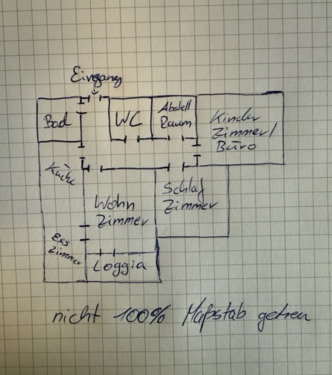 Eingang
Bad
WC
Abstell
Raum
Kinder
Zimmer/
Büro
Küche
Wohn
Zimmer
Schlaf
Zimmer
Ess
Zimmer
Loggia
nicht 100% Maßstab getreu